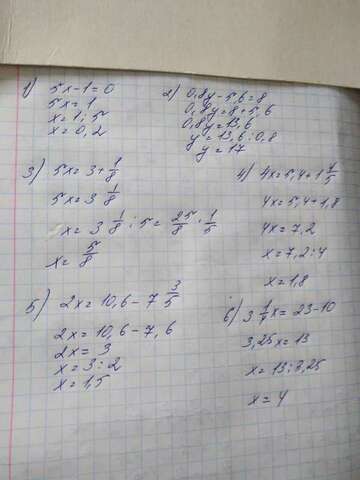 1) 5x-1=0
5x=1
x=1:5
x=0,2
2) 0,8y-5,6=8
0,8y=8+5,6
0,8y=13,6
y=13,6:0,8
y=17
3) 5x=3+1/8
5x=3 1/8
x=3 1/8:5=25/8·1/5
x=5/8
4) 4x=5,4+1 4/5
4x=5,4+1,8
4x=7,2
x=7,2:4
x=1,8
5) 2x=10,6-7 3/5
2x=10,6-7,6
2x=3
x=3:2
x=1,5
6) 3 1/4x=23-10
3,25x=13
x=13:3,25
x=4